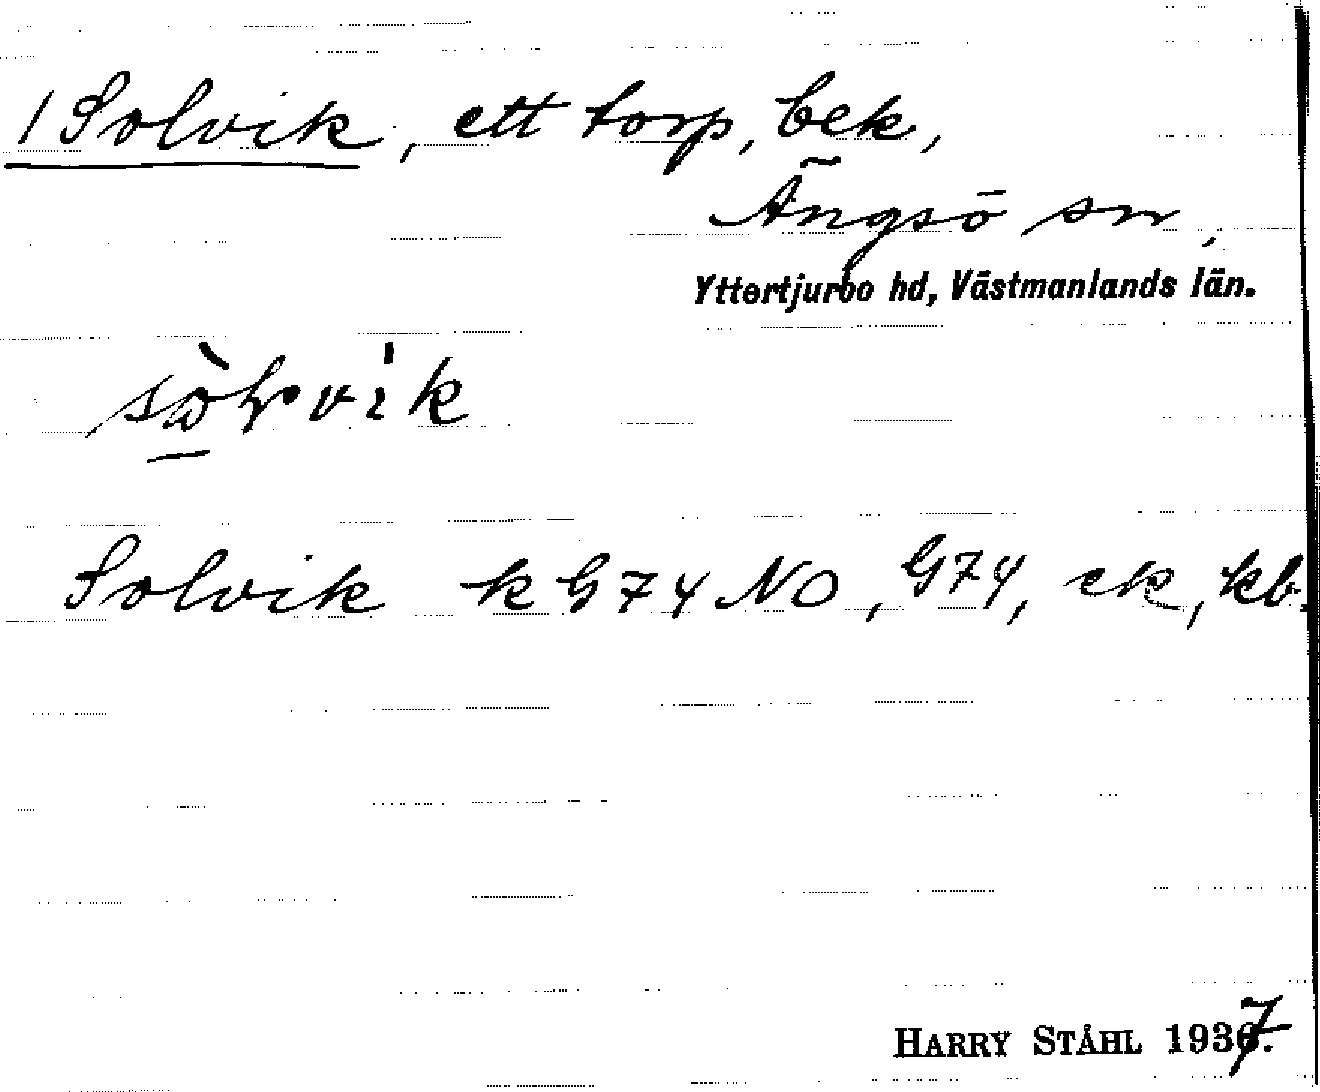 1 Solvik, ett torp, bek,
Ängsö sn,
Yttertjurbo hd, Västmanlands län.
Solvik k G74 NO, G74, ek, kb.
HARRY STÅHL 1937.